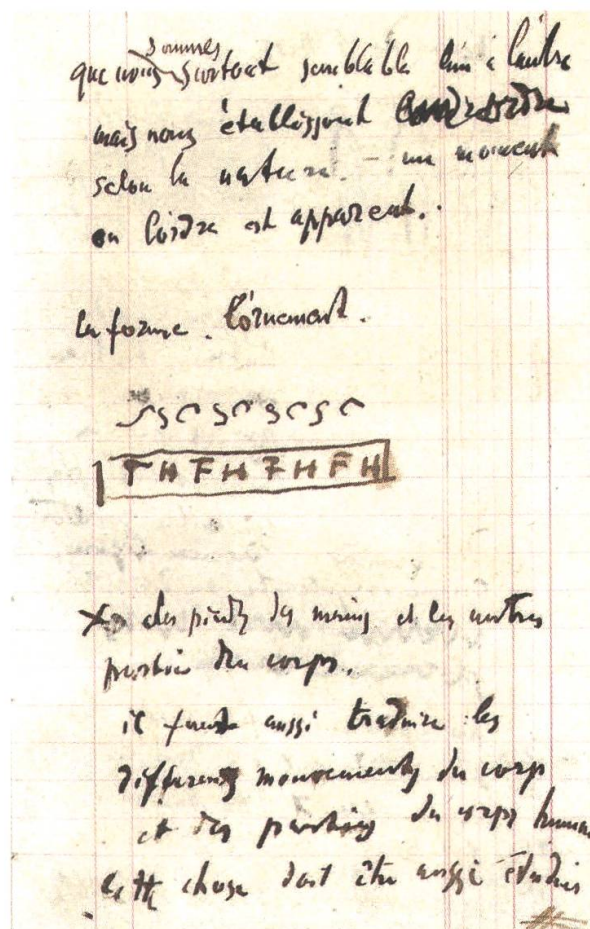 que nous sommes surtout semblable l'un à l'autre
mais nous établissont
selon la nature - un moment
ou l'ordre est apparent.
la forme. l'ornement.
F H F H F H F H
des pieds des mains et les autres
parties du corps.
il faut aussi traduire les
differents mouvements du corps
et des parties du corps humain
cette chose doit être aussi étudié